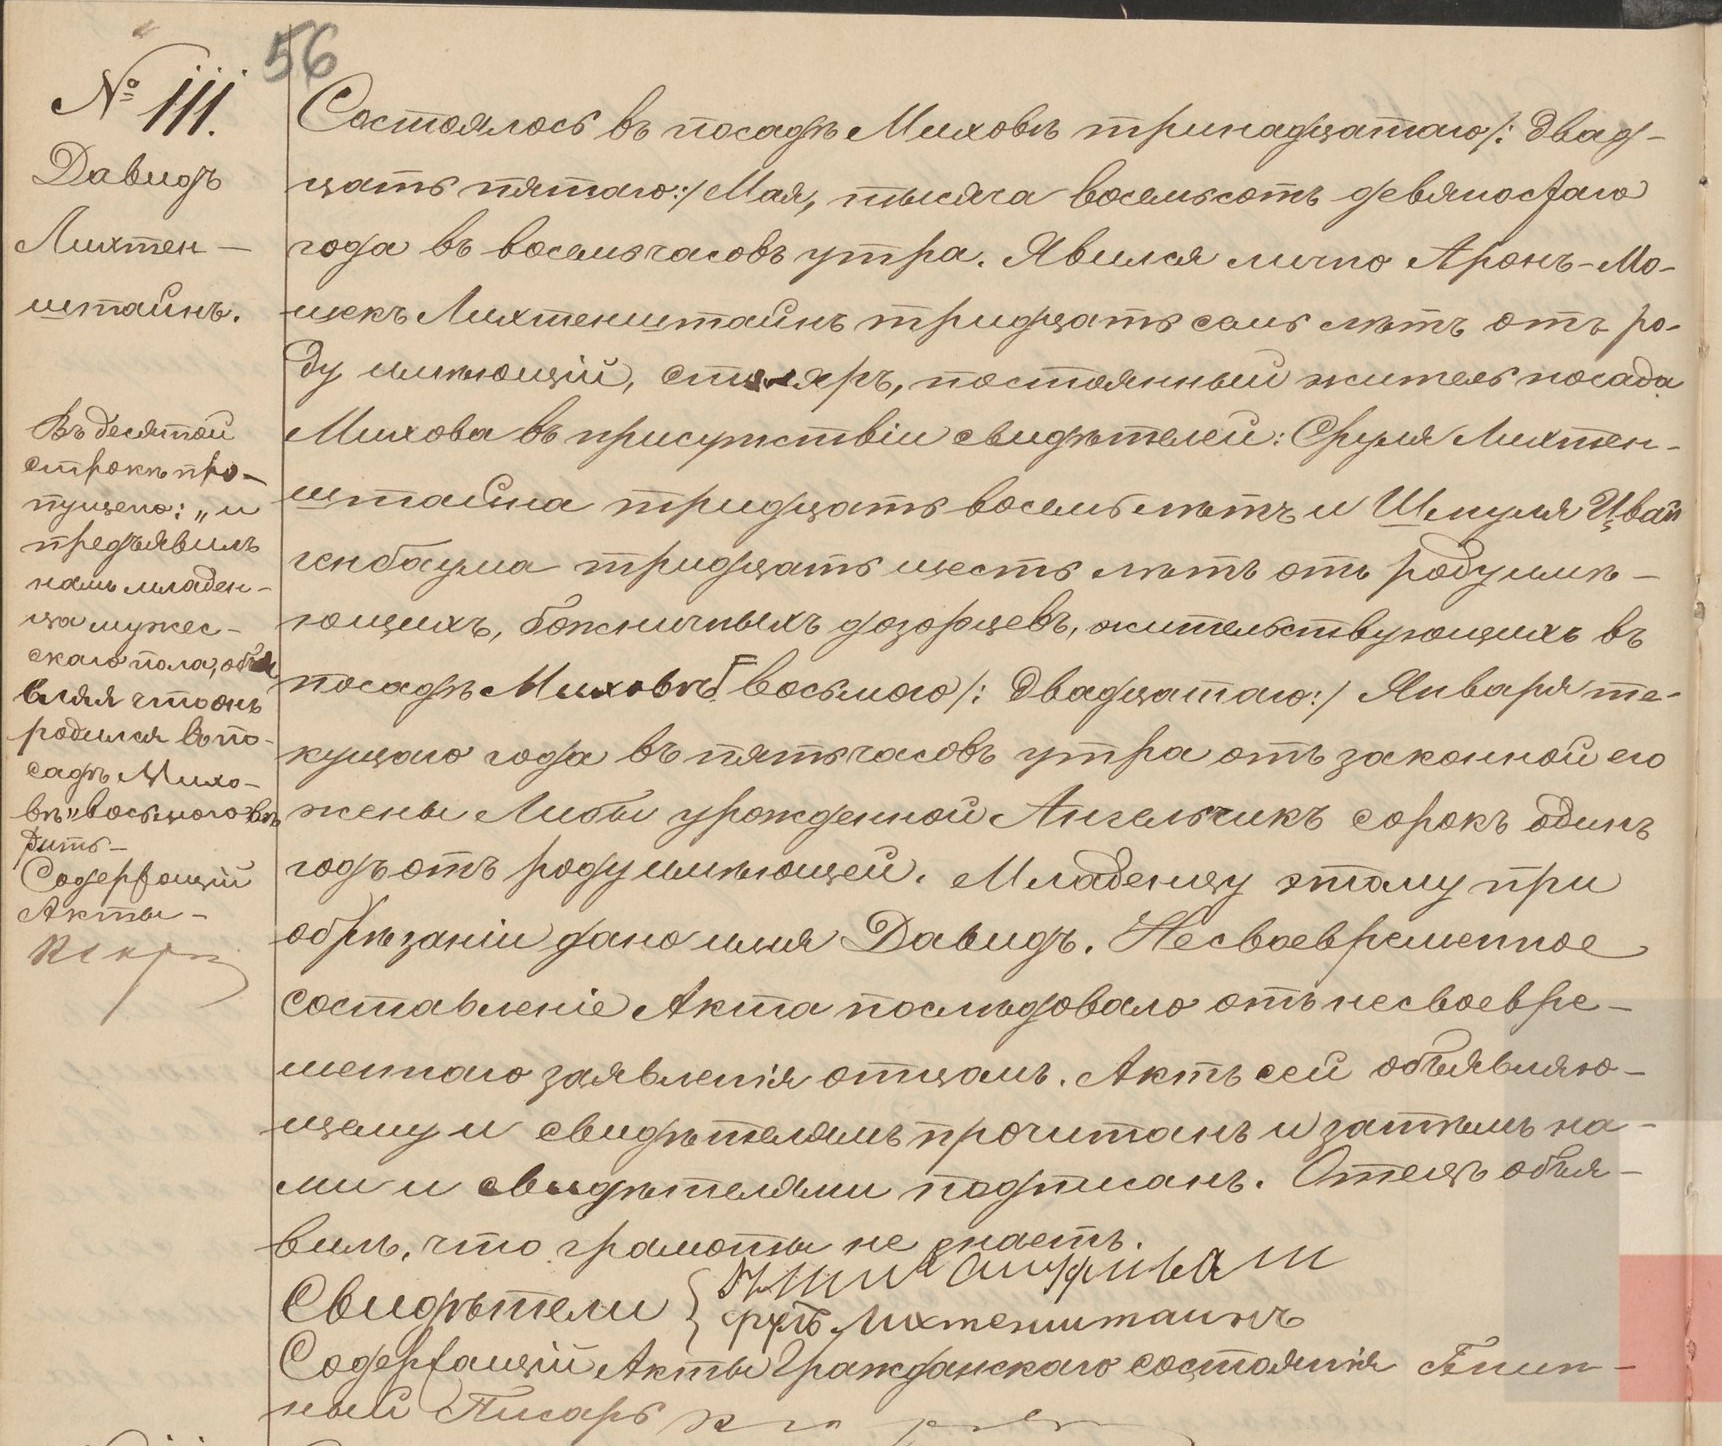 56
№ 111.
Давидъ
Лихтен-
штайнъ.
Въ десятой
строкѣ про-
пущено: „и
предъявилъ
намъ младен-
ца мужес-
каго пола, объя
вляя что онъ
родился въ по-
садѣ Мѣхо-
вѣ" восьмого вѣ
рить-
Содержащій
Акты-
Состоялось въ посадѣ Мѣховѣ тринадцатаго /: двад-
цать пятаго :/ Мая, тысяча восемьсотъ девяностаго
года въ восемь часовъ утра. Явился лично Аронъ-Мо-
шекъ Лихтенштайнъ тридцать семь лѣтъ отъ ро-
ду имѣющій, столяръ, постоянный житель посада
Мѣхова въ присутствіи свидѣтелей: Сруля Лихтен-
штайна тридцать восемь лѣтъ и Шмуля Цвай
генбаума тридцать шесть лѣтъ отъ роду имѣ-
ющихъ, божничныхъ дозорцевъ, жительствующихъ въ
посадѣ Мѣховѣ восьмого /: двадцатаго :/ Января те-
кущаго года въ пять часовъ утра отъ законной его
жены Либы урожденной Ангельчикъ сорокъ одинъ
годъ отъ роду имѣющей. Младенцу этому при
обрѣзаніи дано имя Давидъ. Несвоевременное
составленіе Акта послѣдовало отъ несвоевре-
меннаго заявленія отцомъ. Актъ сей объявляю-
щему и свидѣтелямъ прочитанъ и затѣмъ на-
ми и свидѣтелями подписанъ. Отецъ объя-
вилъ, что грамоты не знаетъ.
Свидѣтели {
Сруль Лихтенштаинъ
Содержащій Акты Гражданскаго состоянія Гмин-
ный Писарь